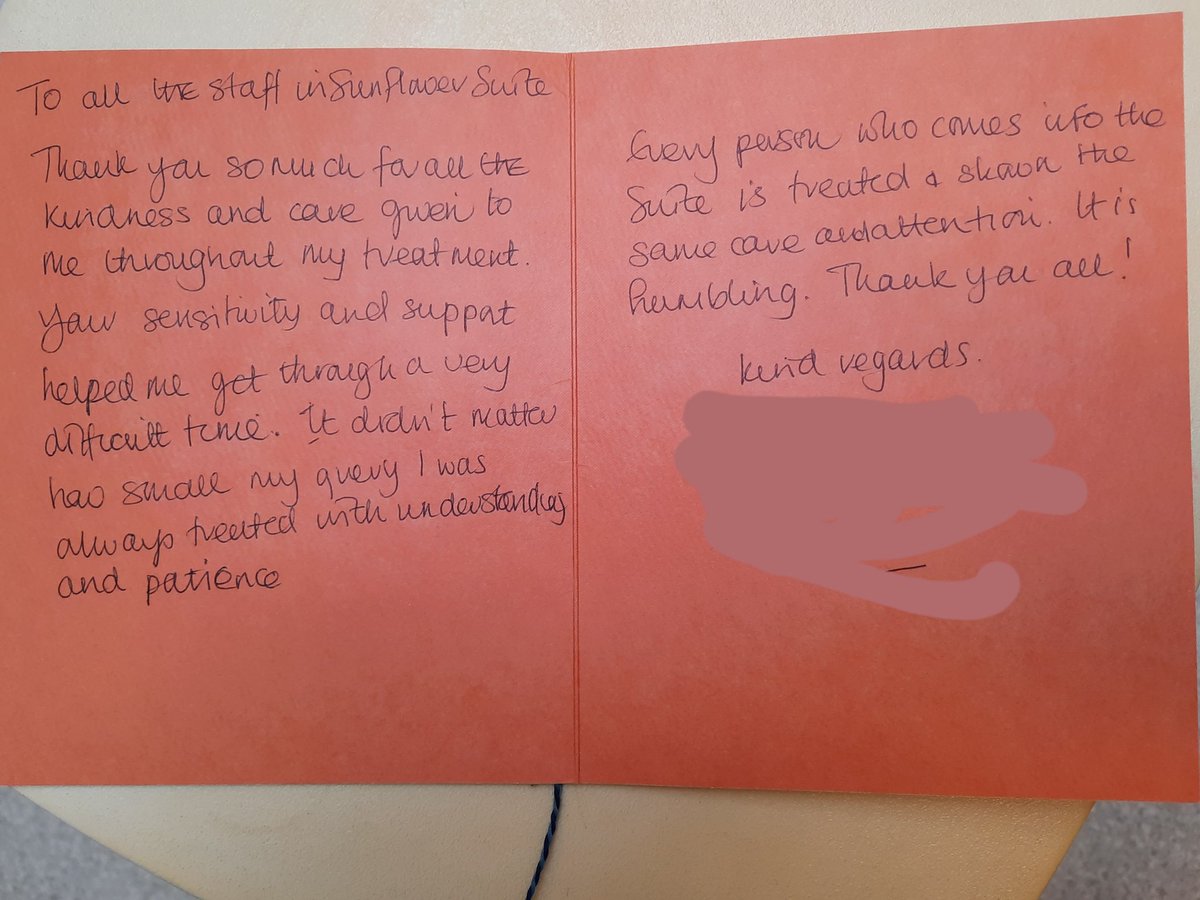 To all the staff in Sunflower Suite
Thank you so much for all the
kindness and care given to
me throughout my treatment.
Your sensitivity and support
helped me get through a very
difficult time. It didn't matter
how small my query I was
always treated with understanding
and patience
Every person who comes into the
Suite is treated & shown the
same care and attention. It is
humbling. Thank you all!
kind regards.